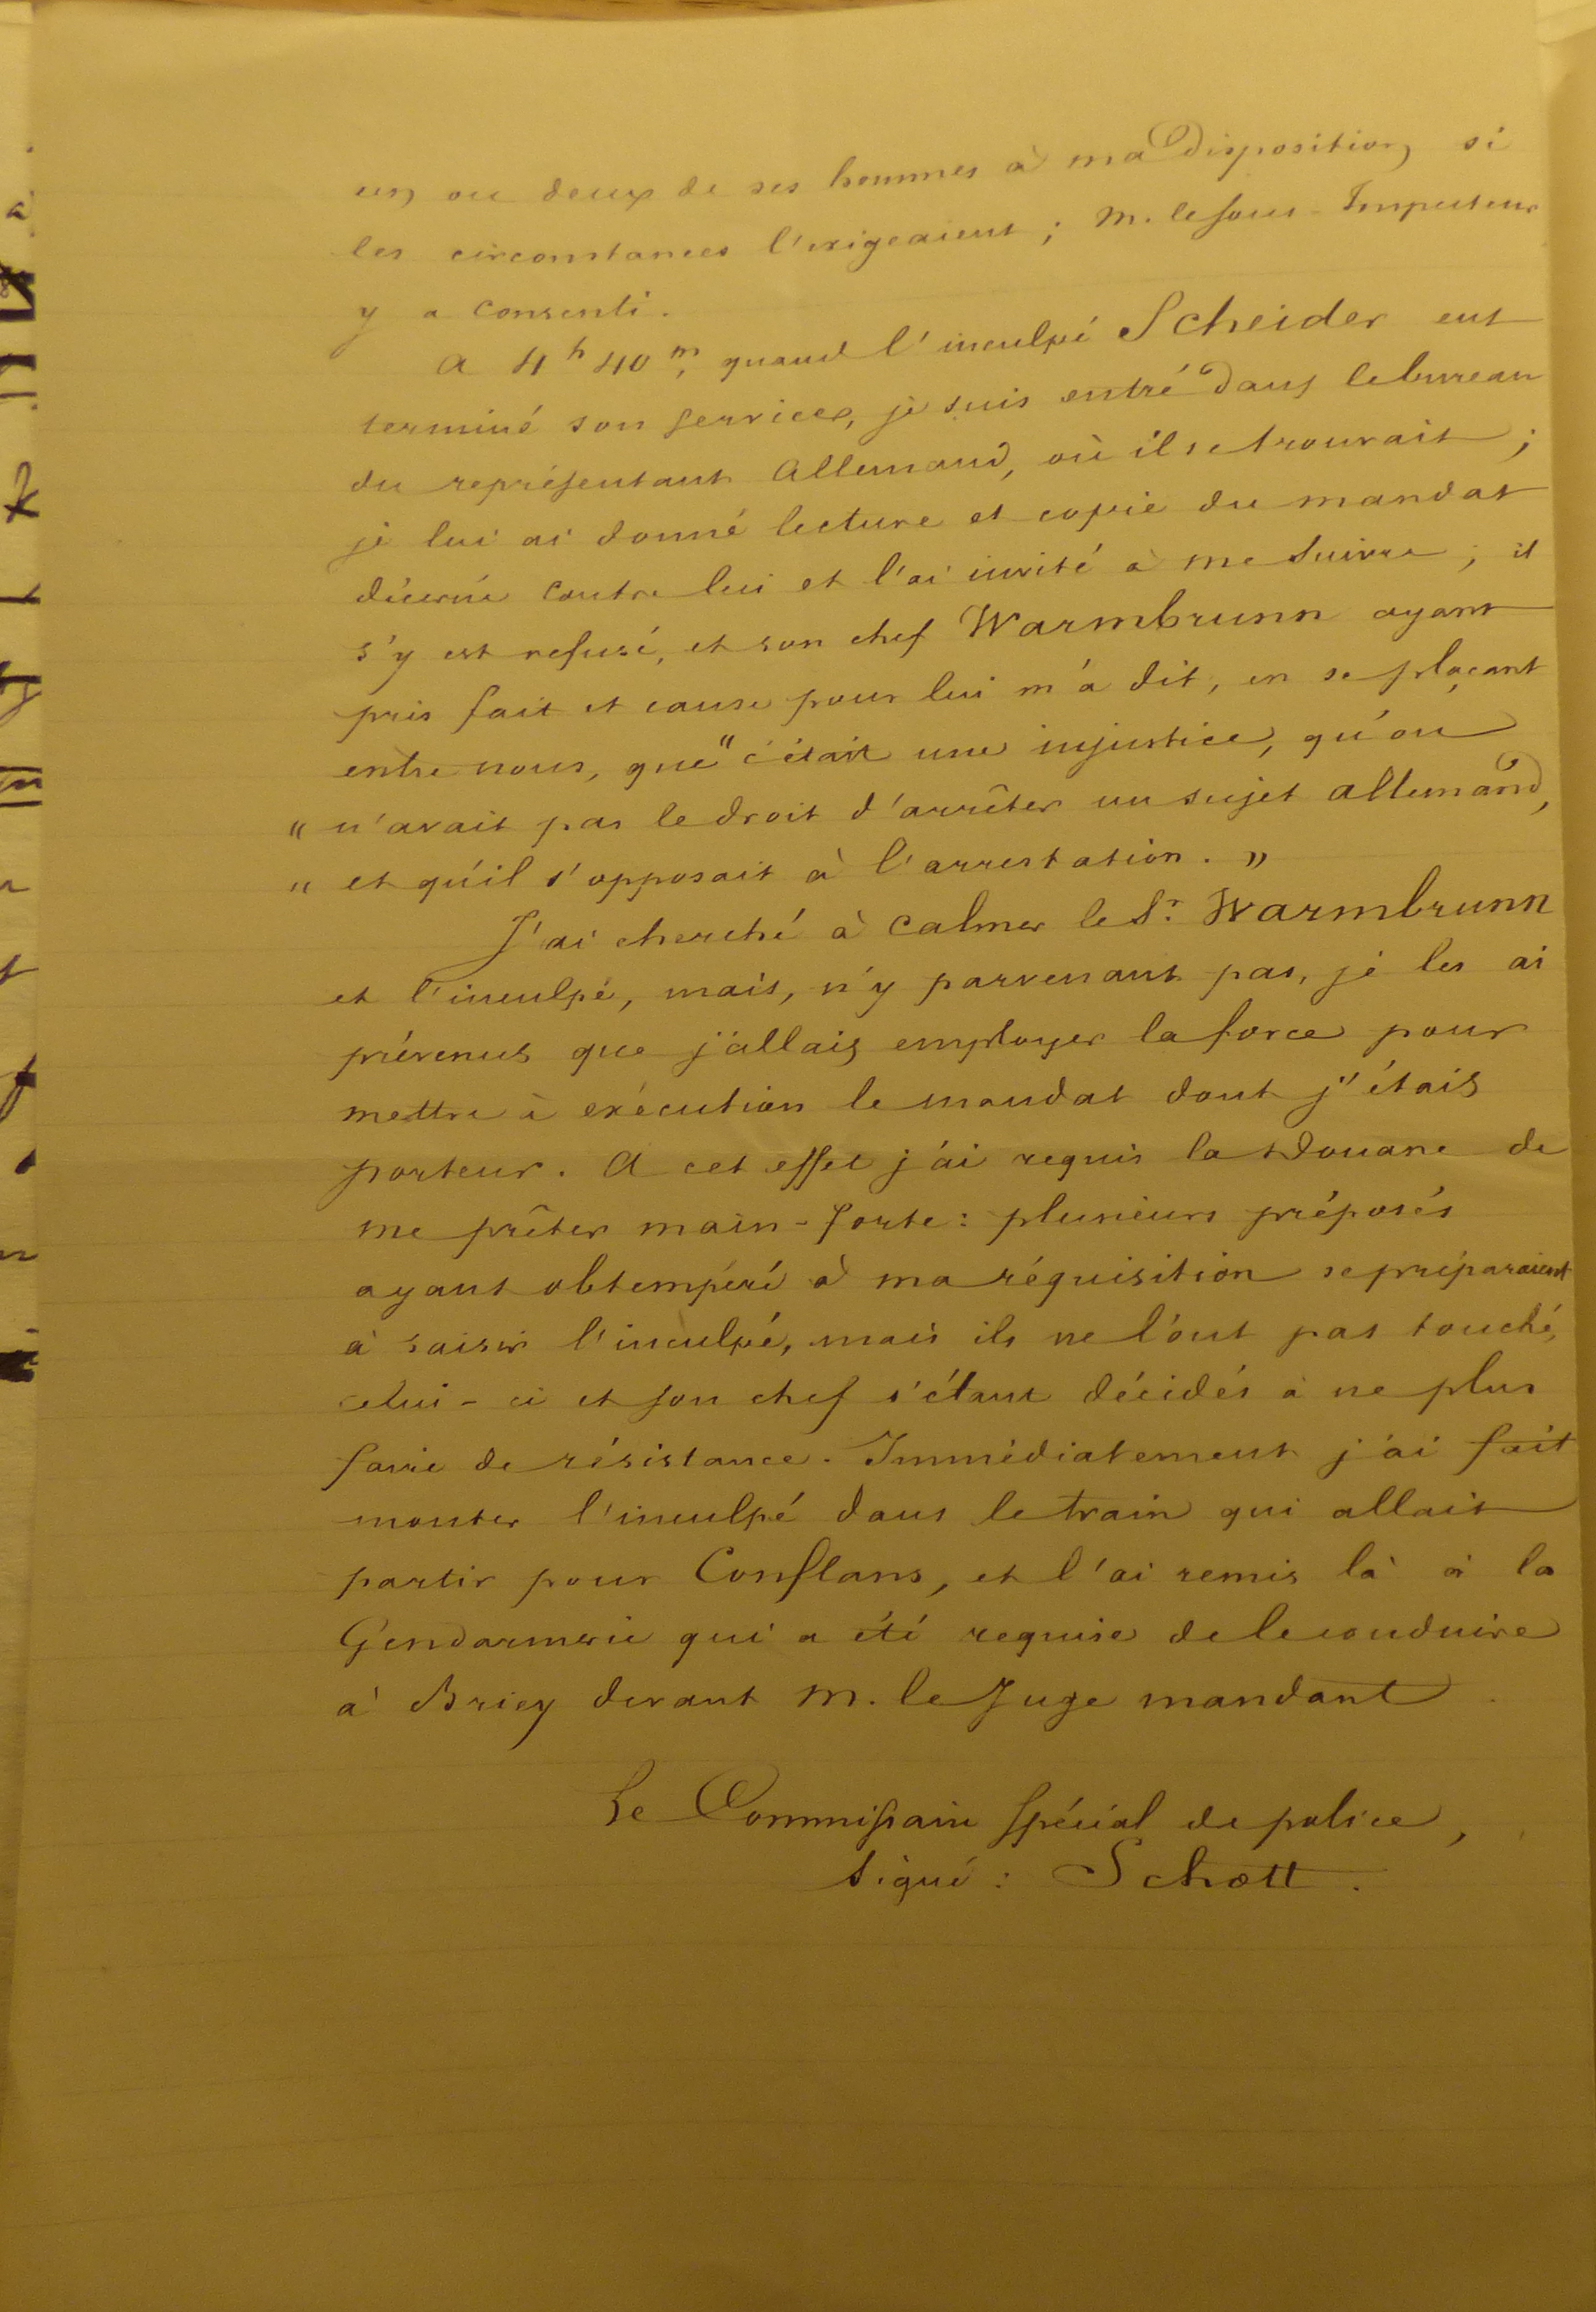 un ou deux de ses hommes à ma disposition, si
les circonstances l'exigeaient ; M. le Sous-Inspecteur
y a consenti.
A 4h 40m, quand l'inculpé Scheider eut
terminé son service, je suis entré dans le bureau
du représentant Allemand, où il se trouvait ;
je lui ai donné lecture et copie du mandat
décerné contre lui et l'ai invité à me suivre ; il
s'y est refusé, et son chef Warmbrunn ayant
pris fait et cause pour lui m'a dit, en se plaçant
entre nous, que "c'était une injustice, qu'on
" n'avait pas le droit d'arrêter un sujet allemand,
" et qu'il s'opposait à l'arrestation. "
J'ai cherché à calmer le Sr. Warmbrunn
et l'inculpé, mais, n'y parvenant pas, je les ai
prévenus que j'allais employer la force pour
mettre à exécution le mandat dont j'étais
porteur. A cet effet j'ai requis la Douane de
me prêter main-forte : plusieurs préposés
ayant obtempéré à ma réquisition se préparaient
à saisir l'inculpé, mais ils ne l'ont pas touché,
celui-ci et son chef s'étant décidés à ne plus
faire de résistance. Immédiatement j'ai fait
monter l'inculpé dans le train qui allait
partir pour Conflans, et l'ai remis là à la
Gendarmerie qui a été requise de le conduire
à Briey devant M. le Juge mandant.
Le Commissaire Spécial de police,
Signé : Schott.